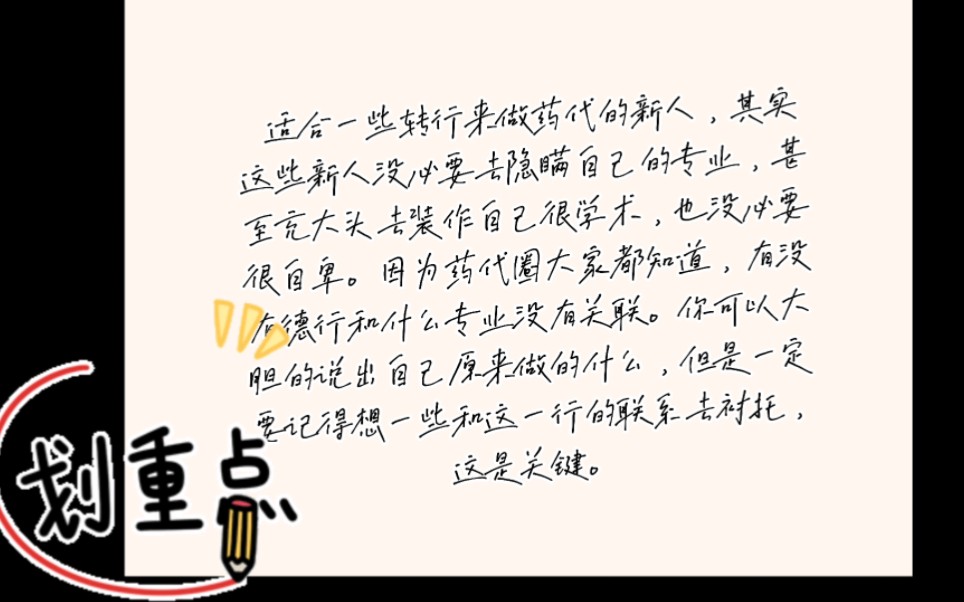 适合一些转行来做药代的新人，其实
这些新人没必要去隐瞒自己的专业，甚
至充大头去装作自己很学术，也没必要
很自卑。因为药代圈大家都知道，有没
有德行和什么专业没有关联。你可以大
胆的说出自己原来做的什么，但是一定
要记得想一些和这一行的联系去衬托，
这是关键。
划重点